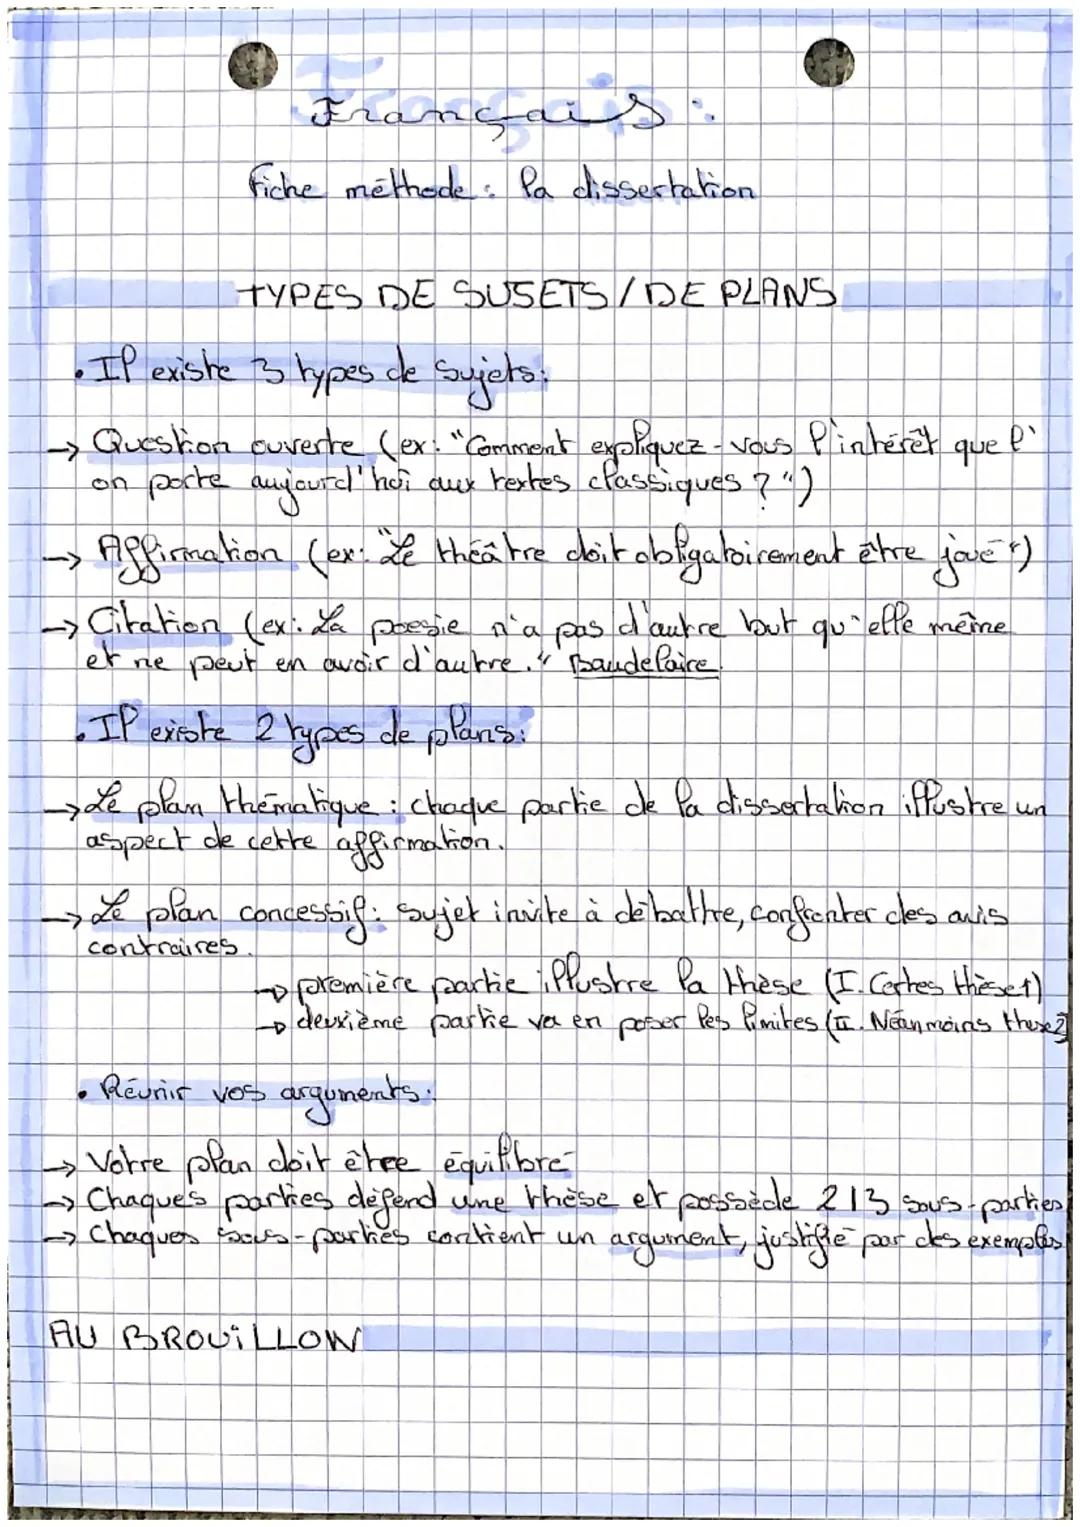 Français :
Fiche méthode : la dissertation
TYPES DE SUJETS / DE PLANS
• Il existe 3 types de sujets :
→ Question ouverte (ex: "Comment expliquez-vous l'intérêt que l'
on porte aujourd'hui aux textes classiques ? ")
→ Affirmation (ex: "Le théâtre doit obligatoirement être joué")
→ Citation (ex: La poesie n'a pas d'autre but qu'elle même
et ne peut en avoir d'autre." Baudelaire.
• Il existe 2 types de plans :
→ Le plan thématique : chaque partie de la dissertation illustre un
aspect de cette affirmation.
→ Le plan concessif : sujet invite à débattre, confronter des avis
contraires.
→ première partie illustre la thèse (I. Certes thèse 1)
→ deuxième partie va en poser les limites (II. Néanmoins these 2)
• Réunir vos arguments :
→ Votre plan doit être équilibré
→ Chaques parties défend une thèse et possède 2/3 sous-parties
→ Chaques sous-parties contient un argument, justifié par des exemples
AU BROUILLON